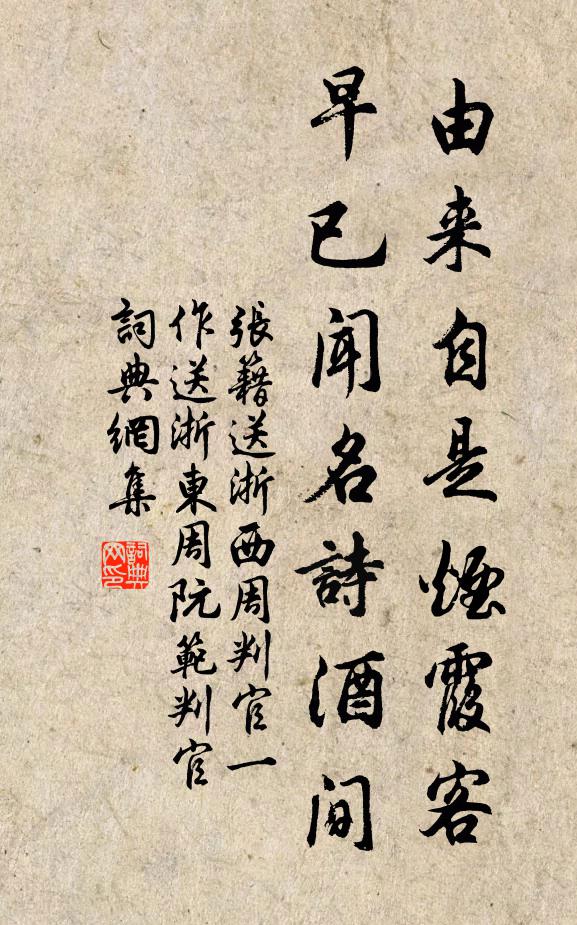 由来自是煙霞客
早已聞名詩酒间
張籍送浙西周判官一
作送浙東周阮範判官
詞典網集
詞典
网印